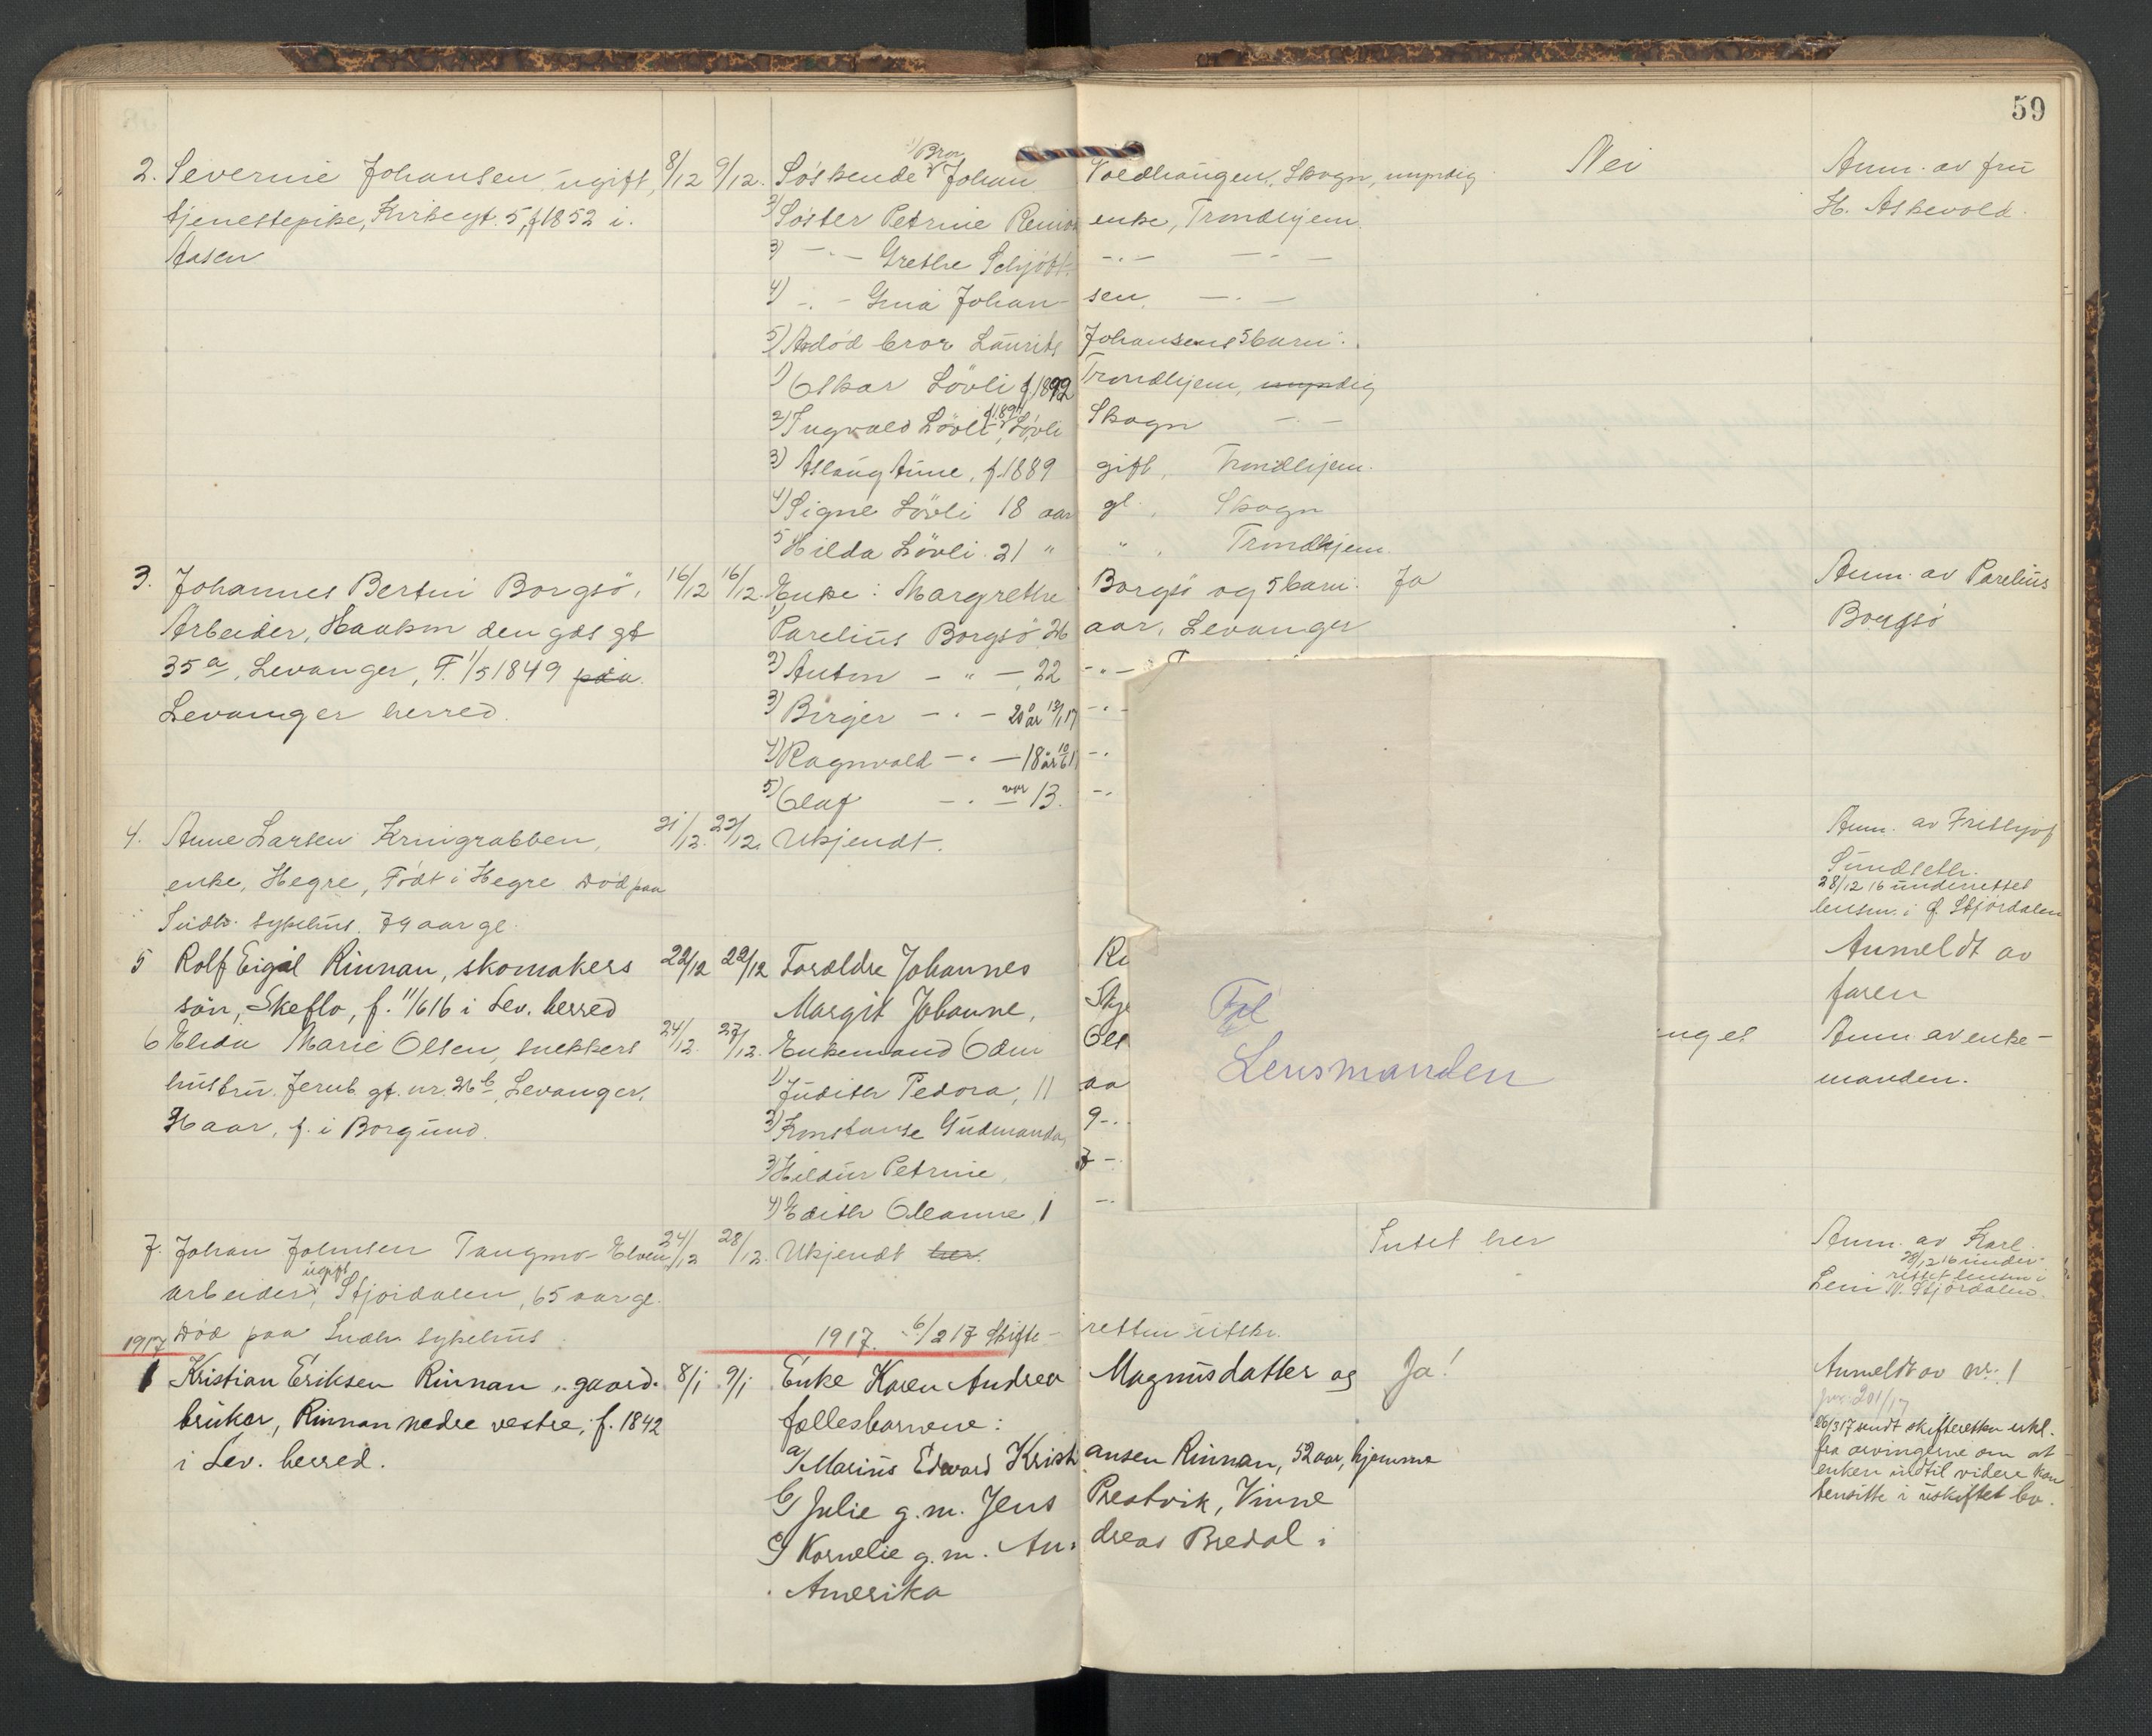 59
2. Severine Johansen ugift, 8/12 9/12. Søskende 1) Bror Johan Voldhaugen, Skogn, myndig Nei Anm. av fru
tjenestepike, Kirkegt. 5, f 1852 i. 2) Søster Petrine enke, Trondhjem. H. Askevold.
Aasen 3) — " — Grethe Schjøtt — " — — " —
4) — " — Gina Johansen, — " —
5) Avdød bror Laurits Johansens 5 barn:
1) Oskar Lövli f 1892 Trondhjem, myndig
2) Ingvald Lövli f 1894, Lövli Skogn — " —
3) Aslaug Aune, f. 1889 gift, Trondhjem.
4) Signe Lövli 18 aar gl., Skogn
5 Hilda Lövli. 21 " " , Trondhjem.
3. Johannes Bertin Borgsö, 16/12 16/12. Enke: Margrethe Borgsö og 5 barn: Ja Anm. av Parelius
Arbeider, Haakon den gds gt 1) Parelius Borgsö 26 aar, Levanger Borgsö
35 a, Levanger, F. 1/5 1849 paa 2) Anton — " — 22 — " —
Levanger herred. 3) Birger — " — 20 år 13/1 17 — " —
4) Ragnvald — " — 18 år 10/6 — "
5) Olaf — " — var 13. — "
4. Anne Larsen 21/12. 22/12. Ukjendt. Anm. av Frithjof
enke, Hegre, Födt i Hegre Död paa Sundseth.
Indh. sykehus. 79 aar gl. 28/12 16 underrettet
lensm. i Stjördalen
5 Rolf Eigil Rinnan, skomakers 22/12 22/12 Forældre Johannes Ri Anmeldt av
sön, Skeflo, f. 11/6 16 i Lev. herred Margit Johanne, faren
6 Elida Marie Olsen, snekkers 24/12. 27/12. Enkemand Odin Ols Anm av enke-
hustru. Jernb. gt. nr. 26 b, Levanger, 1) Judith Pedora, 11 aa manden.
aar, f. i Borgund. 2) Konstanse Gudmanda, 9 — "
3) Hildur Petrine, 7 —
4) Edith Oleanne, 1 — "
Til
Lensmanden
7. Johan Johnsen Tangmo-Elven 24/12 28/12. Ukjendt her. Intet her Anm. av Karl
arbeider, ugift, Stjördalen, 65 aar gl. Lein 28/12 16 under-
rettet lensm i
N. Stjördalen.
Död paa Indh. sykehus.
1917 1917. 6/2 17 Skifteretten utskr.
1 Kristian Eriksen Rinnan, gaard- 8/1 9/1 Enke Karen Andrea Magnusdatter og Ja! Anmeldt av nr. 1
bruker, Rinnan nedre vestre, f. 1842 fællesbarnene: 26/3 17 sendt skifteretten erkl.
i Lev. herred. a/ Marius Edvard Kristiansen Rinnan, 52 aar, hjemme fra arvingerne om at
b/ Julie g. m. Jens Prestvik, Vinne enken indtil videre kan
hensitte i uskiftet bo.
c/ Kornelie g. m. Andreas Bredal i
Amerika